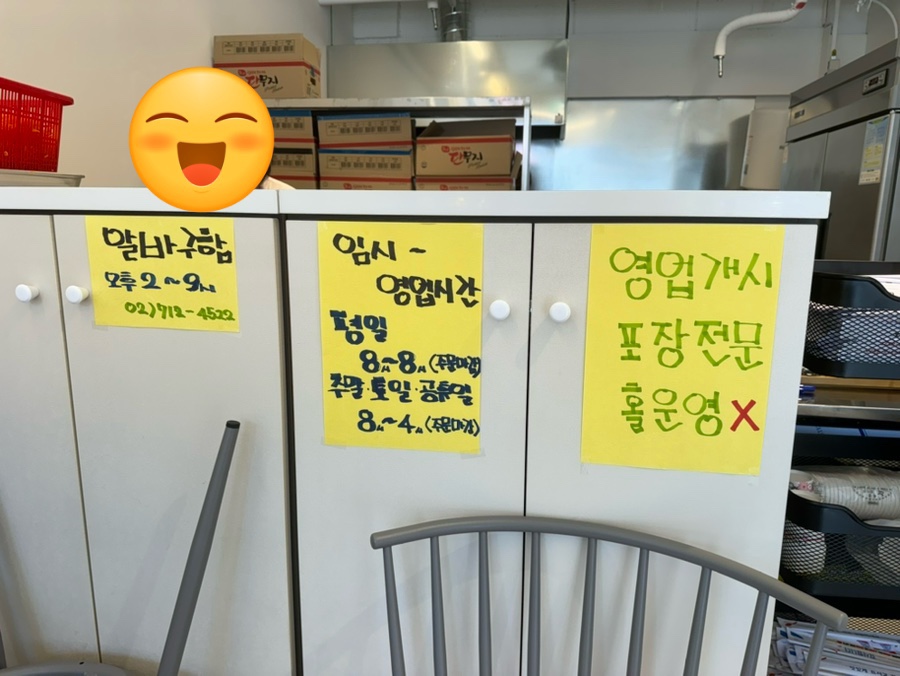 단무지
단무지
알바구함
오후 2~9시
02)712-4522
임시 ~
영업시간
평일
8시~8시 (주문마감)
주말·토일·공휴일
8시~4시 (주문마감)
영업개시
포장전문
홀운영 X